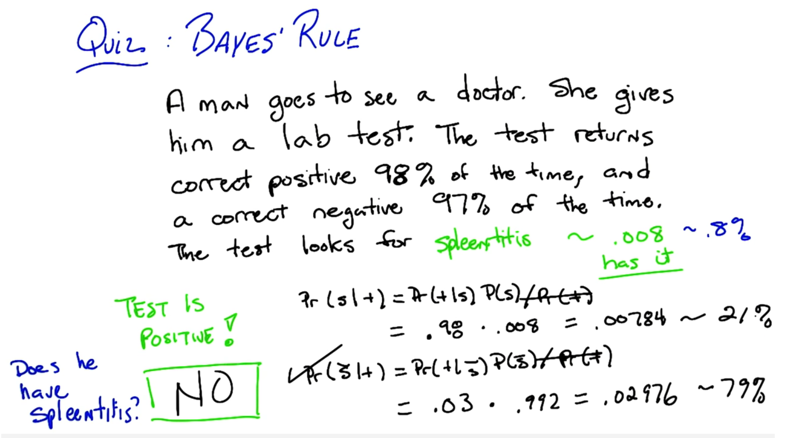 Quiz : BAYES' RULE
A man goes to see a doctor. She gives
him a lab test. The test returns
correct positive 98% of the time, and
a correct negative 97% of the time.
The test looks for spleentitis ~ .008 ~ .8%
has it
TEST IS
POSITIVE!
Pr(s|+) = Pr(+|s) P(s)/Pr(+)
= .98 · .008 = .00784 ~ 21%
Does he
have
spleentitis?
NO
✓ Pr(s̄|+) = Pr(+|s̄) P(s̄)/Pr(+)
= .03 · .992 = .02976 ~ 79%